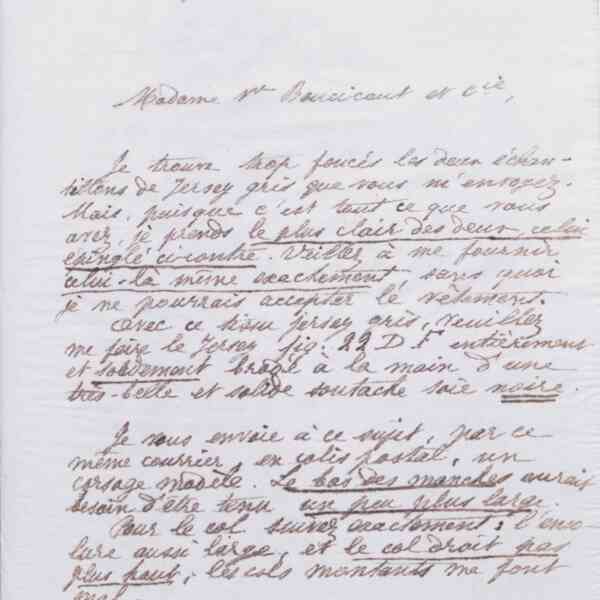 Madame Vve Boucicaut et Cie,
Je trouve trop foncés les deux échan-
tillons de Jersey gris que vous m'envoyez.
Mais, puisque c'est tout ce que vous
avez, je prends le plus clair des deux, celui
épinglé ci-contre. Veillez à me fournir
celui-là même exactement sans quoi
je ne pourrais accepter le vêtement.
Avec ce tissu jersey gris, veuillez
me faire le Jersey fig. 22 D. F entièrement
et solidement brodé à la main d'une
très-belle et solide soutache soie noire.
Je vous envoie à ce sujet, par ce
même courrier, en colis postal, un
corsage modèle. Le bas des manches aurait
besoin d'être tenu un peu plus large.
Pour le col suivez exactement : l'enco-
lure aussi large, et le col droit pas
plus haut ; les cols montants me font
mal